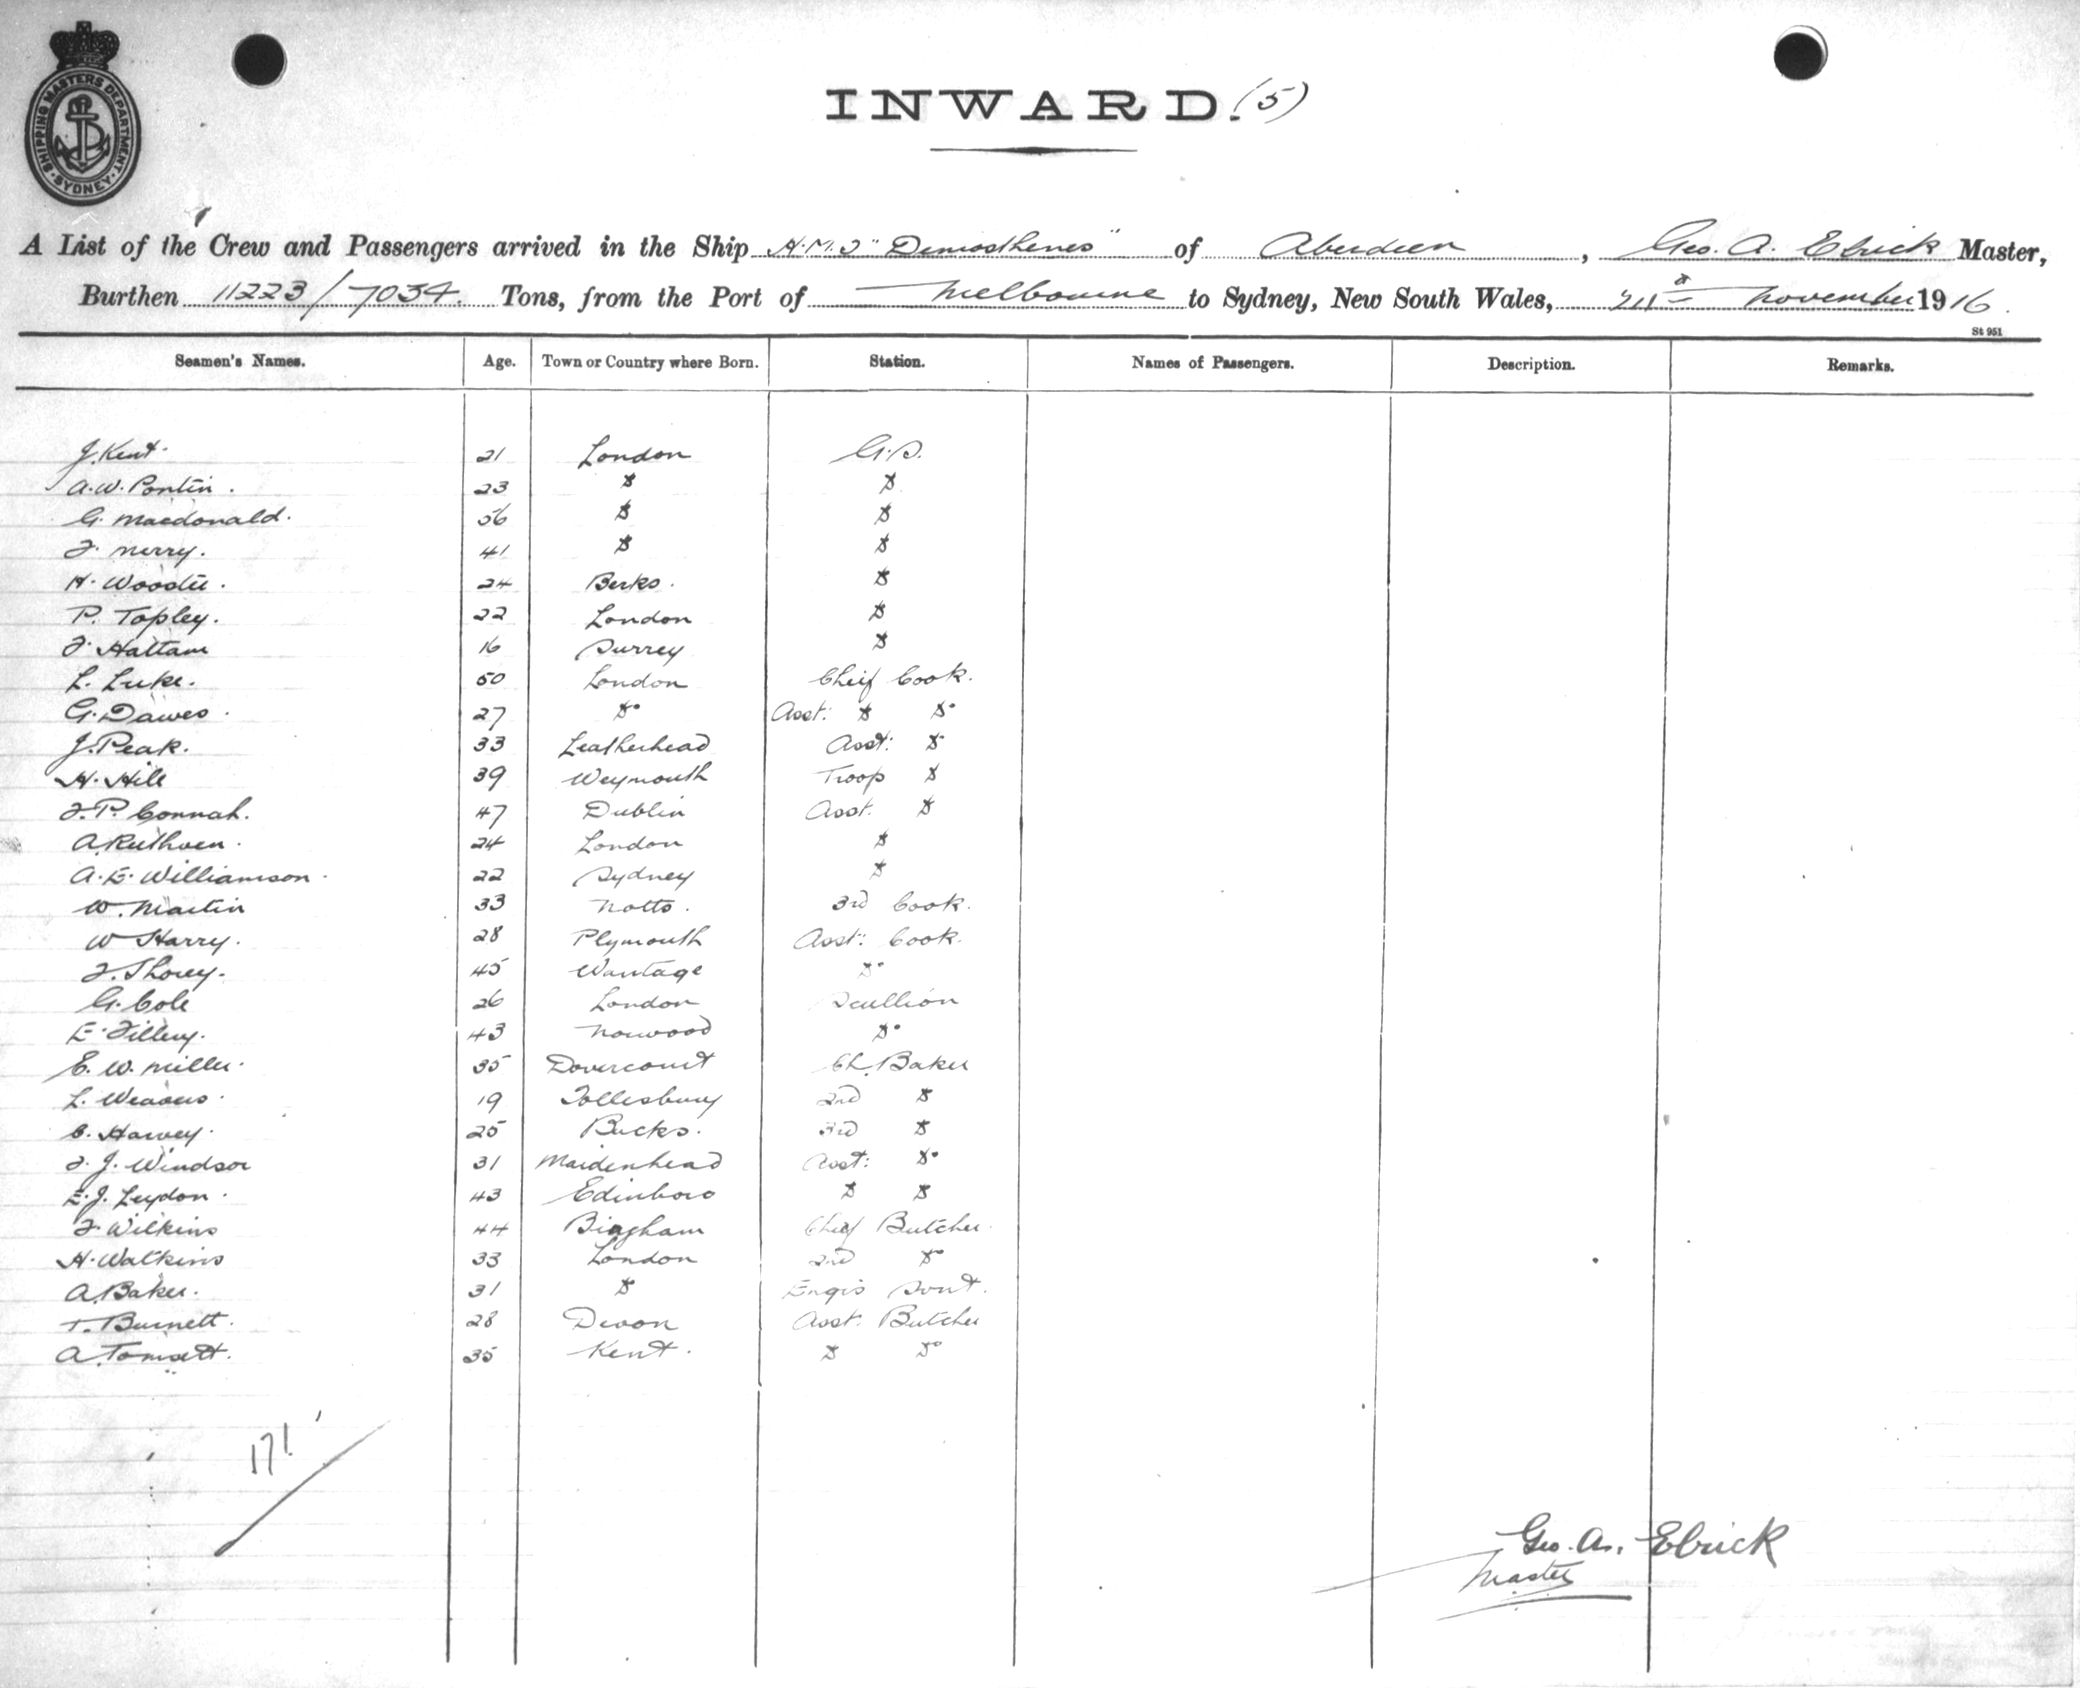 SHIPPING MASTERS DEPARTMENT. SYDNEY.
INWARD. (5)
A List of the Crew and Passengers arrived in the Ship H.M.T "Demosthenes" of Aberdeen, Geo. A. Ebrick Master,
Burthen 11223/7034. Tons, from the Port of Melbourne to Sydney, New South Wales, November 1916.
St 951
Seamen's Names. Age. Town or Country where Born. Station. Names of Passengers. Description. Remarks.
J. Kent. 21 London G.S.
A. W. Pontin. 23 Do Do
G. Macdonald. 56 Do Do
F. Merry. 41 Do Do
H. 24 Berks. Do
P. Topley. 22 London Do
F. Hattam 16 Surrey Do
L. Luke. 50 London Chief Cook.
G. Dawes. 27 Do Asst: Do Do
J. Peak. 33 Leatherhead Asst: Do
H. Hill 39 Weymouth Troop Do
F. P. Connah. 47 Dublin Asst. Do
A. Ruthven. 24 London Do
A. E. Williamson. 22 Sydney Do
W. Martin 33 Notts. 3rd Cook.
W Harry. 28 Plymouth Asst: Cook.
F. 45 Wantage Do
G. Cole 26 London Scullion
E. Tillery. 43 Norwood Do
E. W. Miller. 35 Dovercourt Ch. Baker
L. Weavers. 19 Tollesbury 2nd Do
C. Harvey. 25 Bucks. 3rd Do
F. J. Windsor 31 Maidenhead Asst: Do
E. J. Leydon. 43 Edinboro Do Do
F. Wilkins 44 Bingham Chief Butcher.
H. Watkins 33 London 2nd Do
A. Baker. 31 Do Engrs Svnt.
T. Burnett. 28 Devon Asst. Butcher
A. Tomsett. 35 Kent. Do Do
171
Geo. A. Ebrick
Master